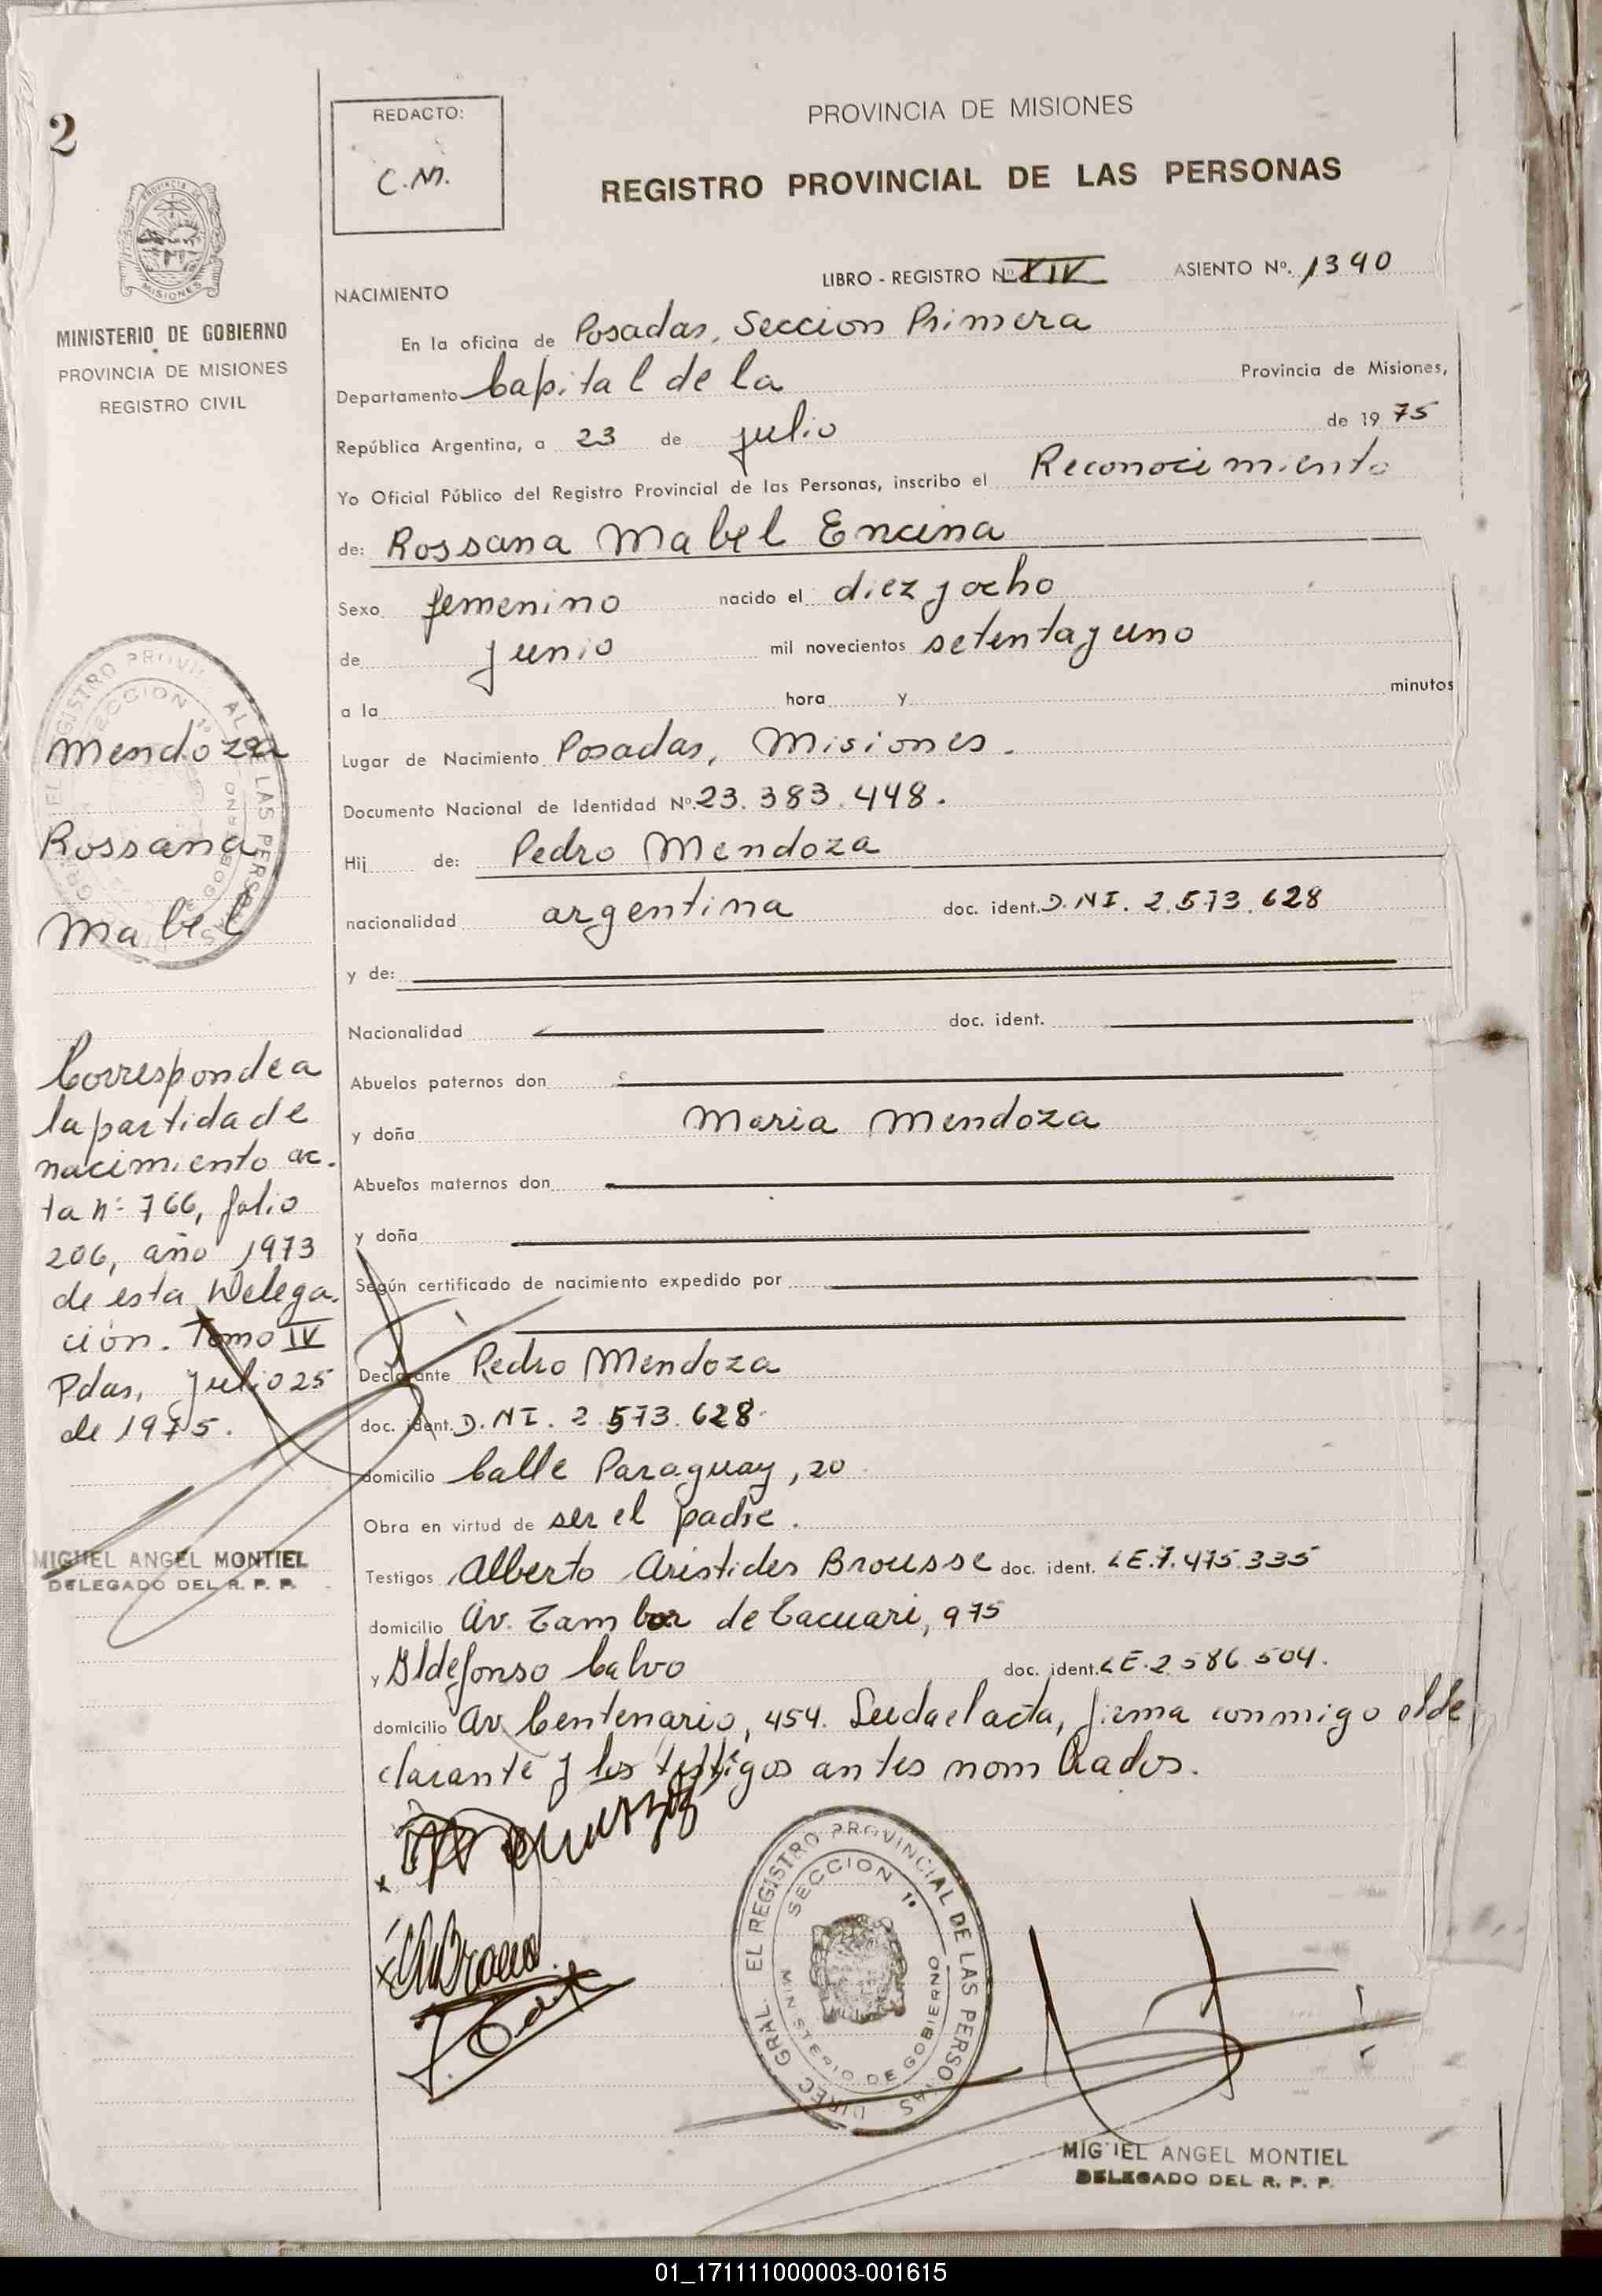 2
REDACTO:
C.M.
PROVINCIA DE MISIONES
REGISTRO PROVINCIAL DE LAS PERSONAS
MISIONES
MINISTERIO DE GOBIERNO
PROVINCIA DE MISIONES
REGISTRO CIVIL
NACIMIENTO
LIBRO - REGISTRO Nº XIV ASIENTO Nº. 1390
En la oficina de Posadas, Seccion Primera
Departamento Capital de la Provincia de Misiones,
República Argentina, a 23 de julio de 19 75
Yo Oficial Público del Registro Provincial de las Personas, inscribo el Reconocimiento
de: Rossana Mabel Encina
Sexo femenino nacido el diez y ocho
de junio mil novecientos setenta y uno
a la hora y minutos
Lugar de Nacimiento Posadas, Misiones.
Documento Nacional de Identidad Nº. 23.383.448.
Hij de: Pedro Mendoza
nacionalidad argentina doc. ident. D.NI. 2.573.628
y de:
Nacionalidad doc. ident.
Abuelos paternos don
y doña Maria Mendoza
Abuelos maternos don
y doña
Según certificado de nacimiento expedido por
Declarante Pedro Mendoza
doc. ident. D.NI. 2.573.628.
domicilio Calle Paraguay, 20
Obra en virtud de ser el padre.
Testigos Alberto Aristides Brousse doc. ident. LE.7.475.335
domicilio Av. Tambor de Tacuari, 975
y Ildefonso Calvo doc. ident. LE.2.586.504.
domicilio Av. Centenario, 454. Leida el acta, firma conmigo el de
clarante y los testigos antes nombrados.
Mendoza
Rossana
Mabel
Corresponde a
la partida de
nacimiento ac.
ta nº 766, folio
206, año 1973
de esta Delega.
ción. Tomo IV
Pdas, Julio 25
de 1975.
MIGUEL ANGEL MONTIEL
DELEGADO DEL R. P. P.
DIREC. GRAL. EL REGISTRO PROVINCIAL DE LAS PERSONAS
SECCION 1º
MINISTERIO DE GOBIERNO
MIGUEL ANGEL MONTIEL
DELEGADO DEL R. P. P.
01_171111000003-001615